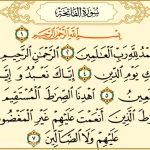 سُورَةُ الْفَاتِحَةِ
بِسْمِ اللَّهِ الرَّحْمَٰنِ الرَّحِيمِ ١
مْدُ لِلَّهِ رَبِّ الْعَٰلَمِينَ ٢ الرَّحْمَٰنِ الرَّحِيمِ
كِ يَوْمِ الدِّينِ ٤ إِيَّاكَ نَعْبُدُ وَإِيَّا
عِينُ ٥ اهْدِنَا الصِّرَٰطَ الْمُسْتَقِيمَ
طَ الَّذِينَ أَنْعَمْتَ عَلَيْهِمْ غَيْرِ الْمَغْضُو
عَلَيْهِمْ وَلَا الضَّالِّينَ ٧